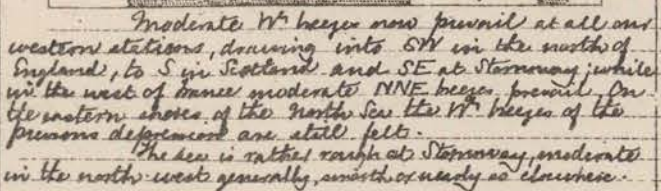 Moderate Wn breezes now prevail at all our
western stations, drawing into SW in the north of
England, to S in Scotland and SE at Stornoway; while
in the west of France moderate NNE breezes prevail. On
the eastern shores of the North Sea the Wn breezes of the
previous depression are still felt.
The sea is rather rough at Stornoway, moderate
in the north-west generally, smooth or nearly so elsewhere.